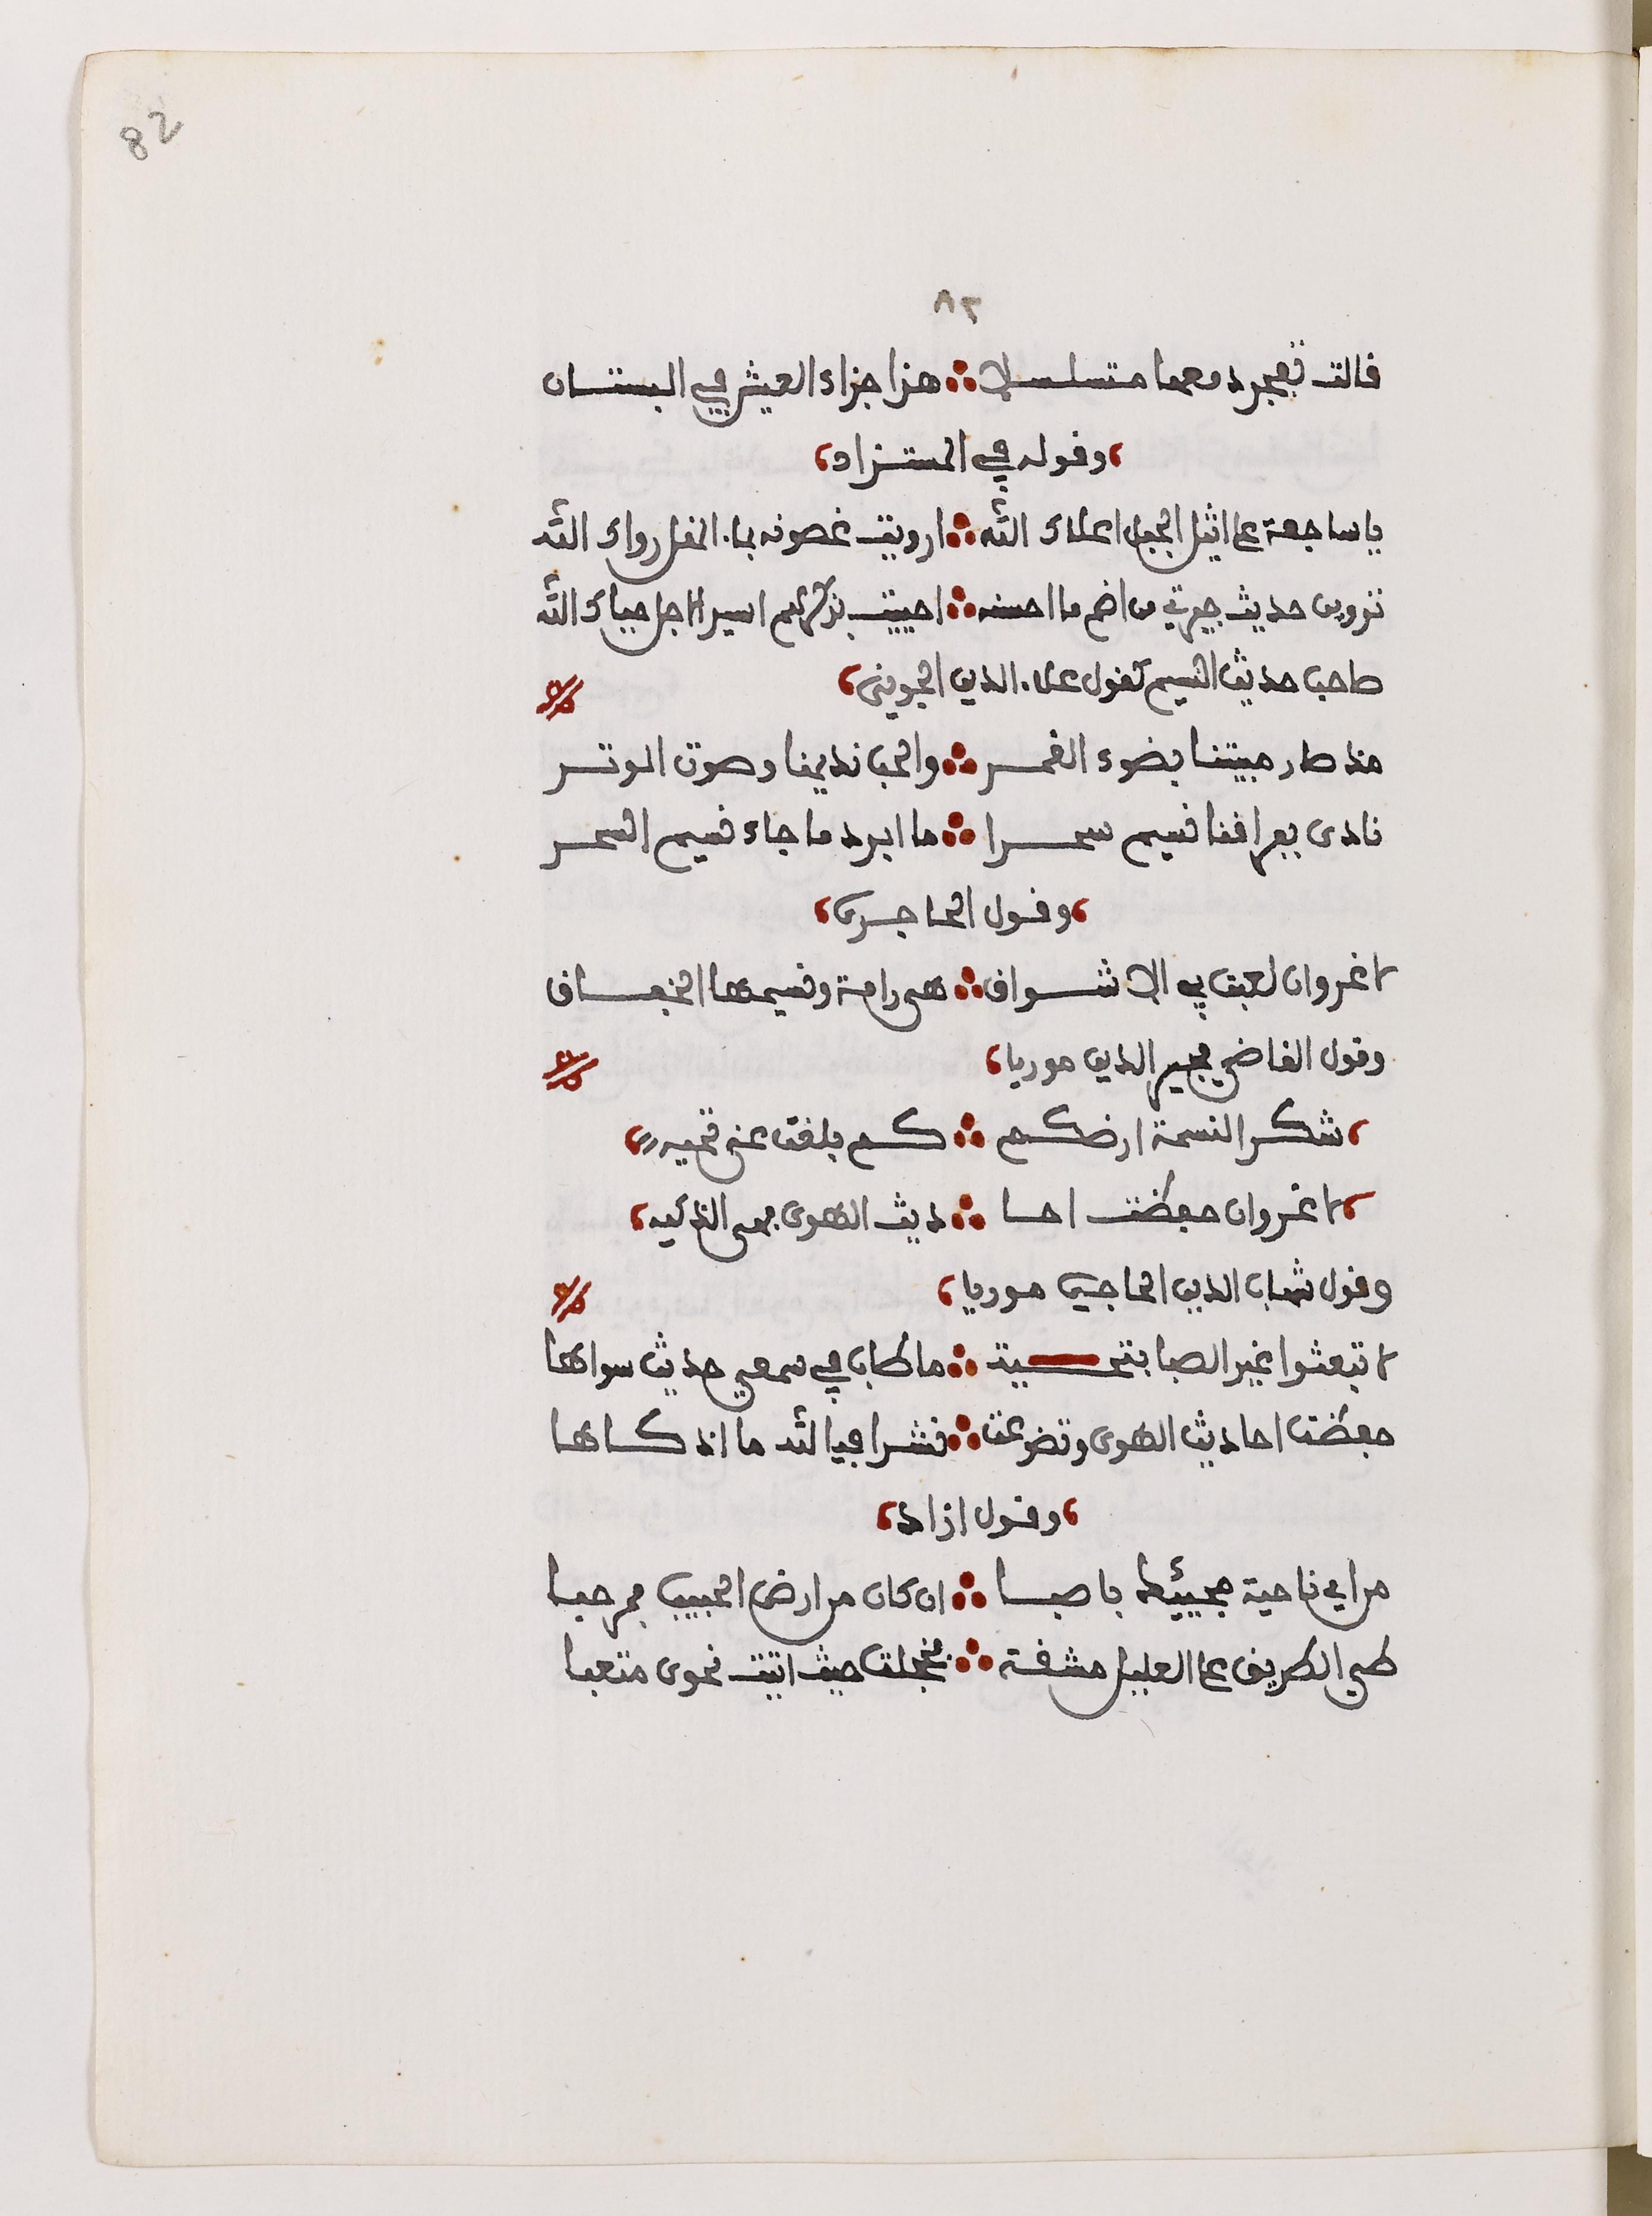 82
٨٢
قالت تفجر دمعها متسلسلا ∴ هذا جزاء العيش في البستان
،وقوله في المستزاد،
يا ساجعة على اثيل الجبل اعلاك الله ∴ ارويت غصونه بماء المقل رواك الله
تروين حديث جيرتي من اضم ما احسنه ∴ احييت بذكرهم اسير الاجل حياك الله
صاحب حديث النسيم كقول علاء الدين الجويني،
مذ صار مبيتنا بضوء القمر ∴ والحب نديمنا وصوت الوتر
نادى بفراقنا نسيم سحرا ∴ ما ابرد ما جاء نسيم السحر
،وقول الحاجري،
لا غروان لعبت بي الاشواق ∴ هي رامة ونسيمها الخفاق
وقول القاضي مجير الدين موريا،
،شكرا لنسمة ارضكم ∴ كم بلغت عني تحيه،
،لا غروان حفظت احا ∴ ديث الهوى فهي الذكيه،
وقول شهاب الدين الحاجبي موريا،
لا تبعثوا غير الصبا بتحية ∴ ما طاب في سمعي حديث سواها
حفظت احاديث الهوى وتضوعت ∴ نشرا فيا لله ما اذكاها
،وقول ازاد،
من اي ناحية مجيئك يا صبا ∴ ان كان من ارض الحبيب فمرحبا
طي الطريق على العليل مشقة ∴ فخجلت حيث اتيت نحوي متعبا